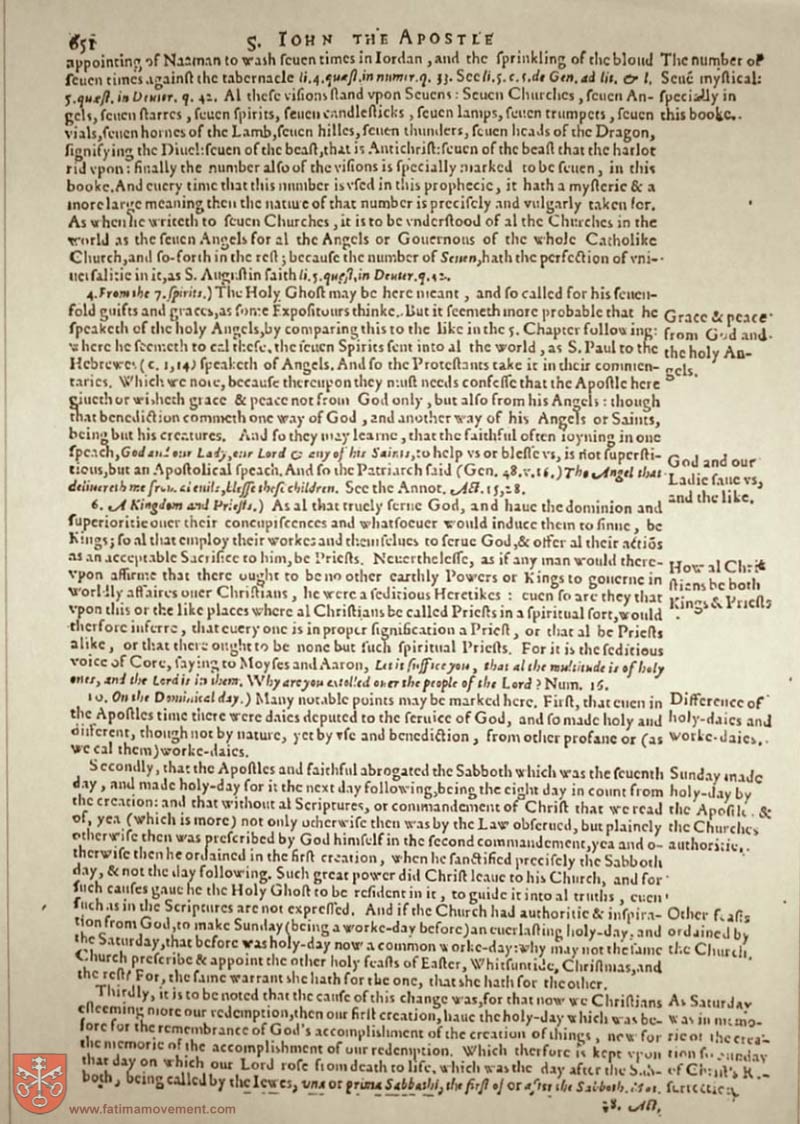 651
S. IOHN THE APOSTLE
appointing of Naaman to wash seuen times in Iordan, and the sprinkling of the bloud
seuen times against the tabernacle li. 4. quæst. in numer. q. 33. See li. 5. c. 5. de Gen. ad lit. & l.
5. quæst. in Deuter. q. 42. Al these visions stand vpon Seuens: Seuen Churches, seuen An-
gels, seuen starres, seuen spirits, seuen candlesticks, seuen lamps, seuen trumpets, seuen
vials, seuen hornes of the Lamb, seuen hilles, seuen thunders, seuen heads of the Dragon,
signifying the Diuel: seuen of the beast, that is Antichrist: seuen of the beast that the harlot
rid vpon: finally the number also of the visions is specially marked to be seuen, in this
booke. And euery time that this number is vsed in this prophecie, it hath a mysterie & a
more large meaning then the nature of that number is precisely and vulgarly taken for.
As when he writeth to seuen Churches, it is to be vnderstood of al the Churches in the
world as the seuen Angels for al the Angels or Gouernous of the whole Catholike
Church, and so-forth in the rest; because the number of Seuen, hath the perfection of vni-
uersalitie in it, as S. Augustin saith li. 5. quæst. in Deuter. q. 42.
The number of
Seuē mystical:
specially in
this booke.
4. From the 7. spirits.) The Holy Ghost may be here meant, and so called for his seuen-
fold guifts and graces, as some Expositours thinke. But it seemeth more probable that he
speaketh of the holy Angels, by comparing this to the like in the 5. Chapter following:
where he seemeth to cal these, the seuen Spirits sent into al the world, as S. Paul to the
Hebrewes (c. 1, 14) speaketh of Angels. And so the Protestants take it in their commen-
taries. Which we note, because thereupon they must needs confesse that the Apostle here
giueth or wisheth grace & peace not from God only, but also from his Angels: though
that benediction commeth one way of God, and another way of his Angels or Saints,
being but his creatures. And so they may learne, that the faithful often ioyning in one
speach, God and our Lady, our Lord & any of his Saints, to help vs or blesse vs, is not supersti-
tious, but an Apostolical speach. And so the Patriarch said (Gen. 48. v. 16.) The Angel that
deliuereth me from al euils, blesse these children. See the Annot. Act. 15, 28.
Grace & peace
from God and
the holy An-
gels.
God and our
Ladie saue vs,
and the like.
6. A Kingdom and Priests.) As al that truely serue God, and haue the dominion and
superioritie ouer their concupiscences and whatsoeuer would induce them to sinne, be
Kings; so al that employ their workes and themselues to serue God, & offer al their actiōs
as an acceptable Sacrifice to him, be Priests. Neuerthelesse, as if any man would there-
vpon affirme that there ought to be no other earthly Powers or Kings to gouerne in
worldly affaires ouer Christians, he were a seditious Heretike: euen so are they that
vpon this or the like places where al Christians be called Priests in a spiritual sort, would
therfore inferre, that euery one is in proper signification a Priest, or that al be Priests
alike, or that there ought to be none but such spiritual Priests. For it is the seditious
voice of Core, saying to Moyses and Aaron, Let it suffice you, that al the multitude is of holy
ones, and the Lord is in them. Why are you extolled ouer the people of the Lord? Num. 16.
How al Christ
stians be both
Kings & Priests
10. On the Dominical day.) Many notable points may be marked here. First, that euen in
the Apostles time there were daies deputed to the seruice of God, and so made holy and
different, though not by nature, yet by vse and benediction, from other profane or (as
we cal them) worke-daies.
Difference of
holy-daies and
worke-daies.
Secondly, that the Apostles and faithful abrogated the Sabboth which was the seuenth
day, and made holy-day for it the next day following, being the eight day in count from
the creation: and that without al Scriptures, or commandement of Christ that we read
of, yea (which is more) not only otherwise then was by the Law obserued, but plainely
otherwise then was prescribed by God himself in the second commandement, yea and o-
therwise then he ordained in the first creation, when he sanctified precisely the Sabboth
day, & not the day following. Such great power did Christ leaue to his Church, and for
such causes gaue he the Holy Ghost to be resident in it, to guide it into al truths, euen
such as in the Scriptures are not expressed. And if the Church had authoritie & inspira-
tion from God, to make Sunday (being a worke-day before) an euerlasting holy-day, and
the Saturday, that before was holy-day now a common worke-day: why may not the same
Church prescribe & appoint the other holy feasts of Easter, Whitsuntide, Christmas, and
the rest? For, the same warrant she hath for the one, that she hath for the other.
Sunday made
holy-day by
the Apostle. &
the Churches
authoritie.
Other feasts
ordained by
the Church.
Thirdly, it is to be noted that the cause of this change was, for that now we Christians
esteeming more our redemption, then our first creation, haue the holy-day which was be-
fore for the remembrance of God's accomplishment of the creation of things, now for
the memorie of the accomplishment of our redemption. Which therfore is kept vpon
that day on which our Lord rose from death to life, which was the day after the Sab-
both, being called by the Iewes, vna or prima Sabbathi, the first of or after the Sabboth. Mat.
28. Act.
As Saturday
was in memo-
rie of the crea-
tion so Sunday
of Christ's R-
surrection.
www.fatimamovement.com